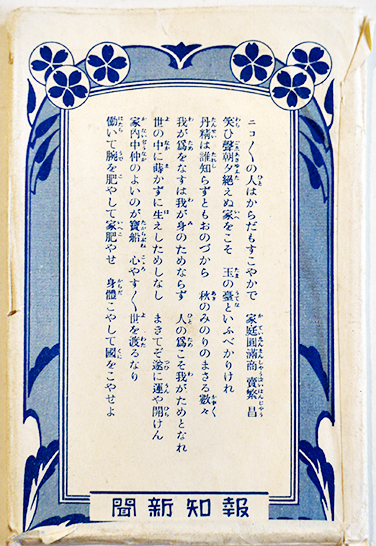 ニコ〳〵の人はからだもすこやかで 家庭圓滿商賣繁昌
笑ひ聲朝夕絕えぬ家をこそ 玉の臺といふべかりけれ
丹精は誰知らずともおのづから 秋のみのりのまさる數々
我が爲をなすは我が身のためならず 人の爲こそ我がためとなれ
世の中に蒔かずに生えしためしなし まきてぞ遂に運や開けん
家內中仲のよいのが寶船 心やす〳〵世を渡るなり
働いて腕を肥やして家肥やせ 身體こやして國をこやせよ
聞新知報